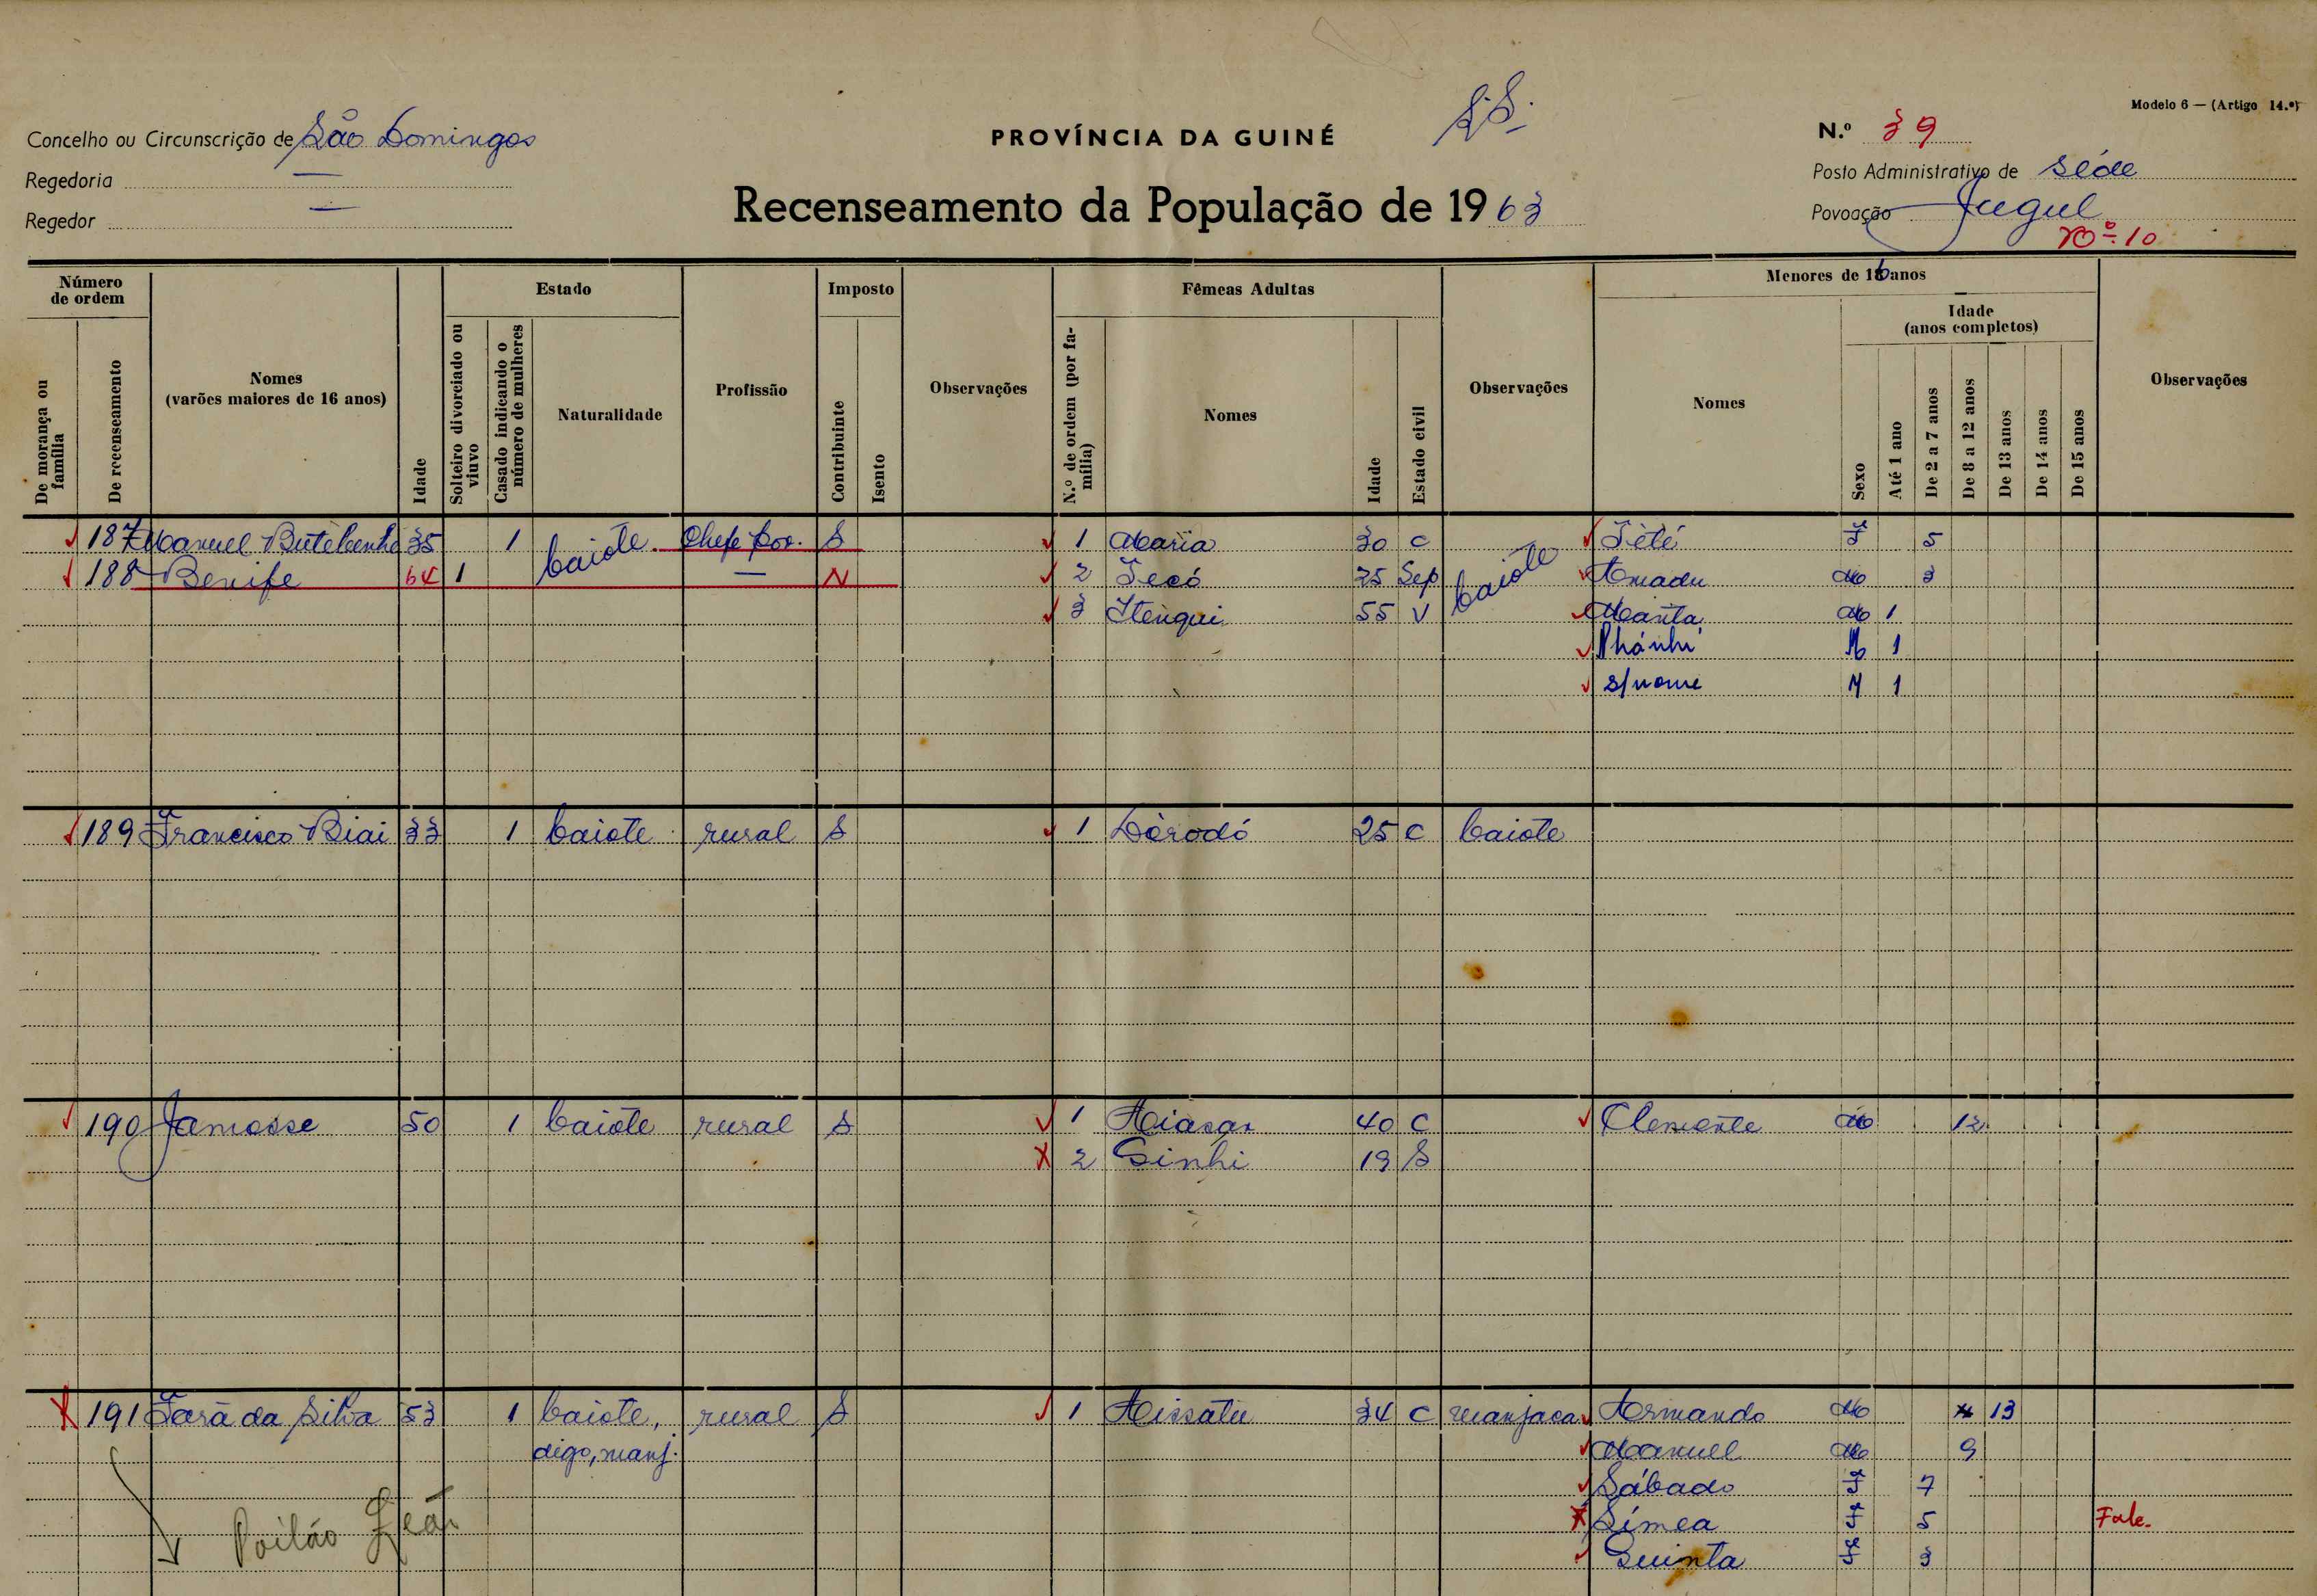 Modelo 6 — (Artigo 14.º)
Concelho ou Circunscrição de São Domingos
PROVÍNCIA DA GUINÉ
N.º 39
Regedoria —
Posto Administrativo de Séde
Regedor —
Recenseamento da População de 1963
Povoação Jugul
Nº 10
Número de ordem
Estado
Imposto
Fêmeas Adultas
Menores de 16 anos
Idade
(anos completos)
De morança ou família
De recenseamento
Nomes
(varões maiores de 16 anos)
Idade
Solteiro divorciado ou viuvo
Casado indicando o número de mulheres
Naturalidade
Profissão
Contribuinte
Isento
Observações
N.º de ordem (por família)
Nomes
Idade
Estado civil
Observações
Nomes
Sexo
Até 1 ano
De 2 a 7 anos
De 8 a 12 anos
De 13 anos
De 14 anos
De 15 anos
Observações
187 Manuel 35 1 baiote Chefe pov. S 1 Maria 30 C baiote Tété F 5
188 Benife 64 1 — N 2 Tecó 25 Sep Amadu M 3
3 Itenqui 55 V M 1
Nhánhi M 1
s/nome M 1
189 Francisco Biai 33 1 baiote rural S 1 Dèrodó 25 C baiote
190 Jamosse 50 1 baiote rural S 1 40 C Clemente M 12
2 Sinhi 19 S
191 da Silva 53 1 baiote, rural S 1 Aissatu 34 C manjaca Armando M 13
digo, manj. Manuel M 9
Sábado F 7
Símea F 5 Fale.
Quinta F 3
Poilão Leão